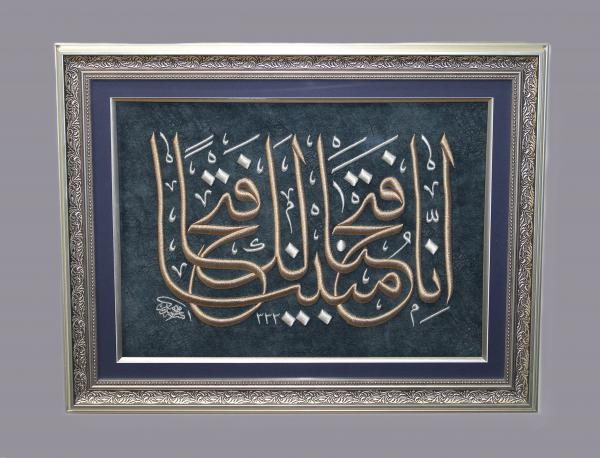 إِنَّا فَتَحْنَا لَكَ فَتْحًا مُبِينًا